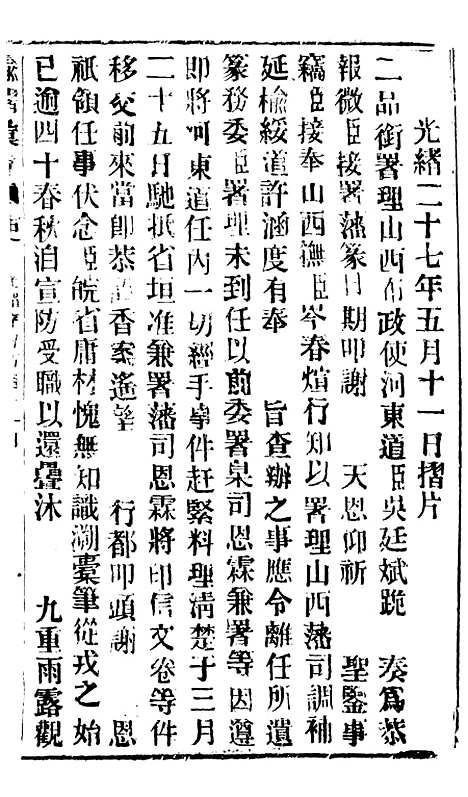 光緒二十七年五月十一日摺片
二品銜署理山西布政使河東道臣吳廷斌跪 奏爲恭
報微臣接署藩篆日期叩謝 天恩仰祈 聖鑒事
竊臣接奉山西撫臣岑春煊行知以署理山西藩司調補
延榆綏道許涵度有奉 旨查辦之事應令離任所遺
篆務委臣署理未到任以前委署臬司恩霖兼署等因遵
即將河東道任內一切經手事件赶緊料理清楚于三月
二十五日馳抵省垣准兼署藩司恩霖將印信文卷等件
移交前來當卽恭設香案遙望 行都叩頭謝 恩
祗領任事伏念臣皖省庸材愧無知識溯橐筆從戎之始
已逾四十春秋洎宣防受職以還疊沐 九重雨露觀